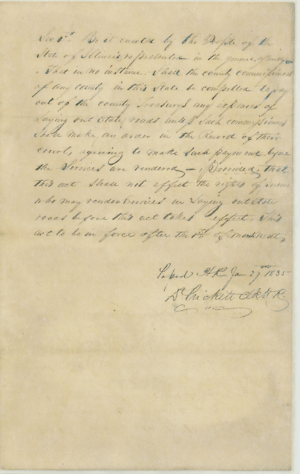 Sec 1st Be it enacted by the People of the
State of Illinois represented in the General Assembly
That in no instance shall the county commissioners
of any county in this State be compelled to pay
out of the county Treasury any expenses of
laying out State roads unless said commissioners
shall make an order in the Record of their
court, agreeing to make such payment before
the services are rendered — Provided, that
this act shall not affect the rights of
who may render services in laying out State
roads before this act takes effect. This
act to be in force after the 1st of
Passed H.R. Jany 29 1835
D. Prickett Clk H.R.